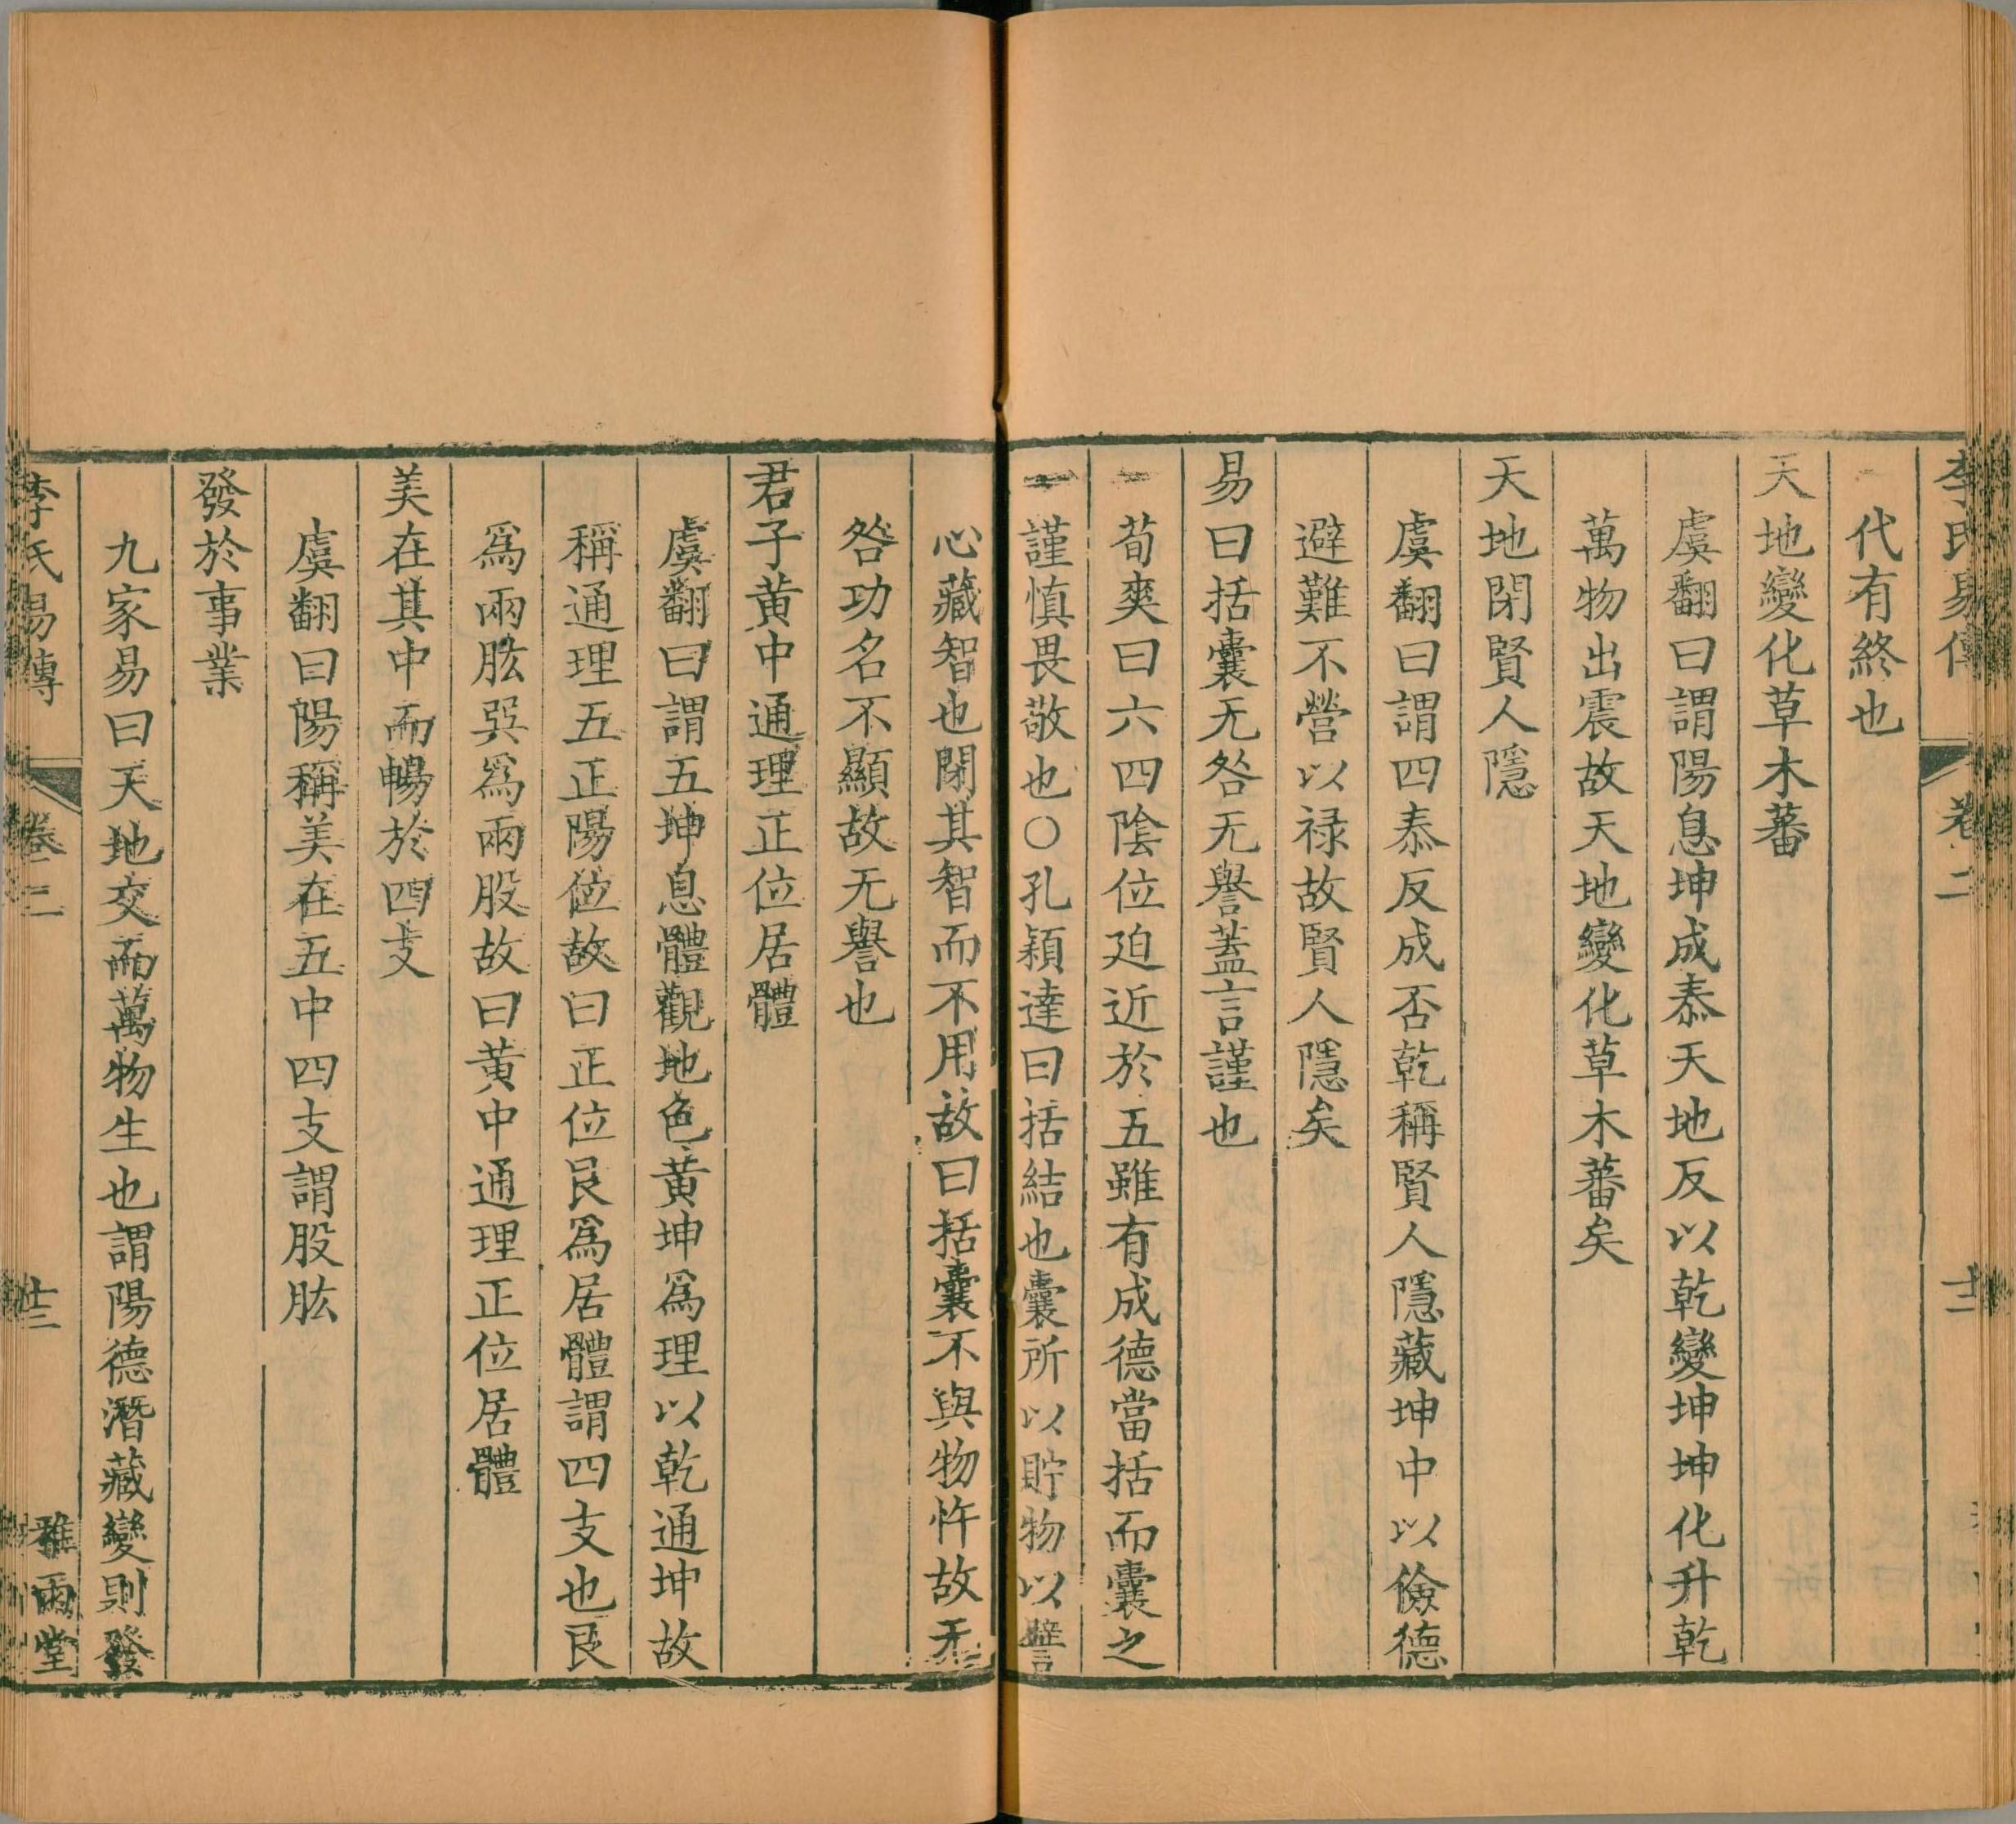 李氏易傳 卷二 十二
代有終也
天地變化草木蕃
虞翻曰謂陽息坤成泰天地反以乾變坤坤化升乾
萬物出震故天地變化草木蕃矣
天地閉賢人隱
虞翻曰謂四泰反成否乾稱賢人隱藏坤中以儉德
避難不營以禄故賢人隱矣
易曰括囊无咎无譽蓋言謹也
荀爽曰六四陰位迫近於五雖有成德當括而囊之
謹慎畏敬也○孔穎達曰括結也囊所以貯物以譬
心藏智也閉其智而不用故曰括囊不與物忤故无
咎功名不顯故无譽也
君子黄中通理正位居體
虞翻曰謂五坤息體觀地色黄坤爲理以乾通坤故
稱通理五正陽位故曰正位艮爲居體謂四支也艮
爲兩肱巽爲兩股故曰黄中通理正位居體
美在其中而暢於四支
虞翻曰陽稱美在五中四支謂股肱
發於事業
九家易曰天地交而萬物生也謂陽德潛藏變則發
李氏易傳 卷二 十三 雅雨堂